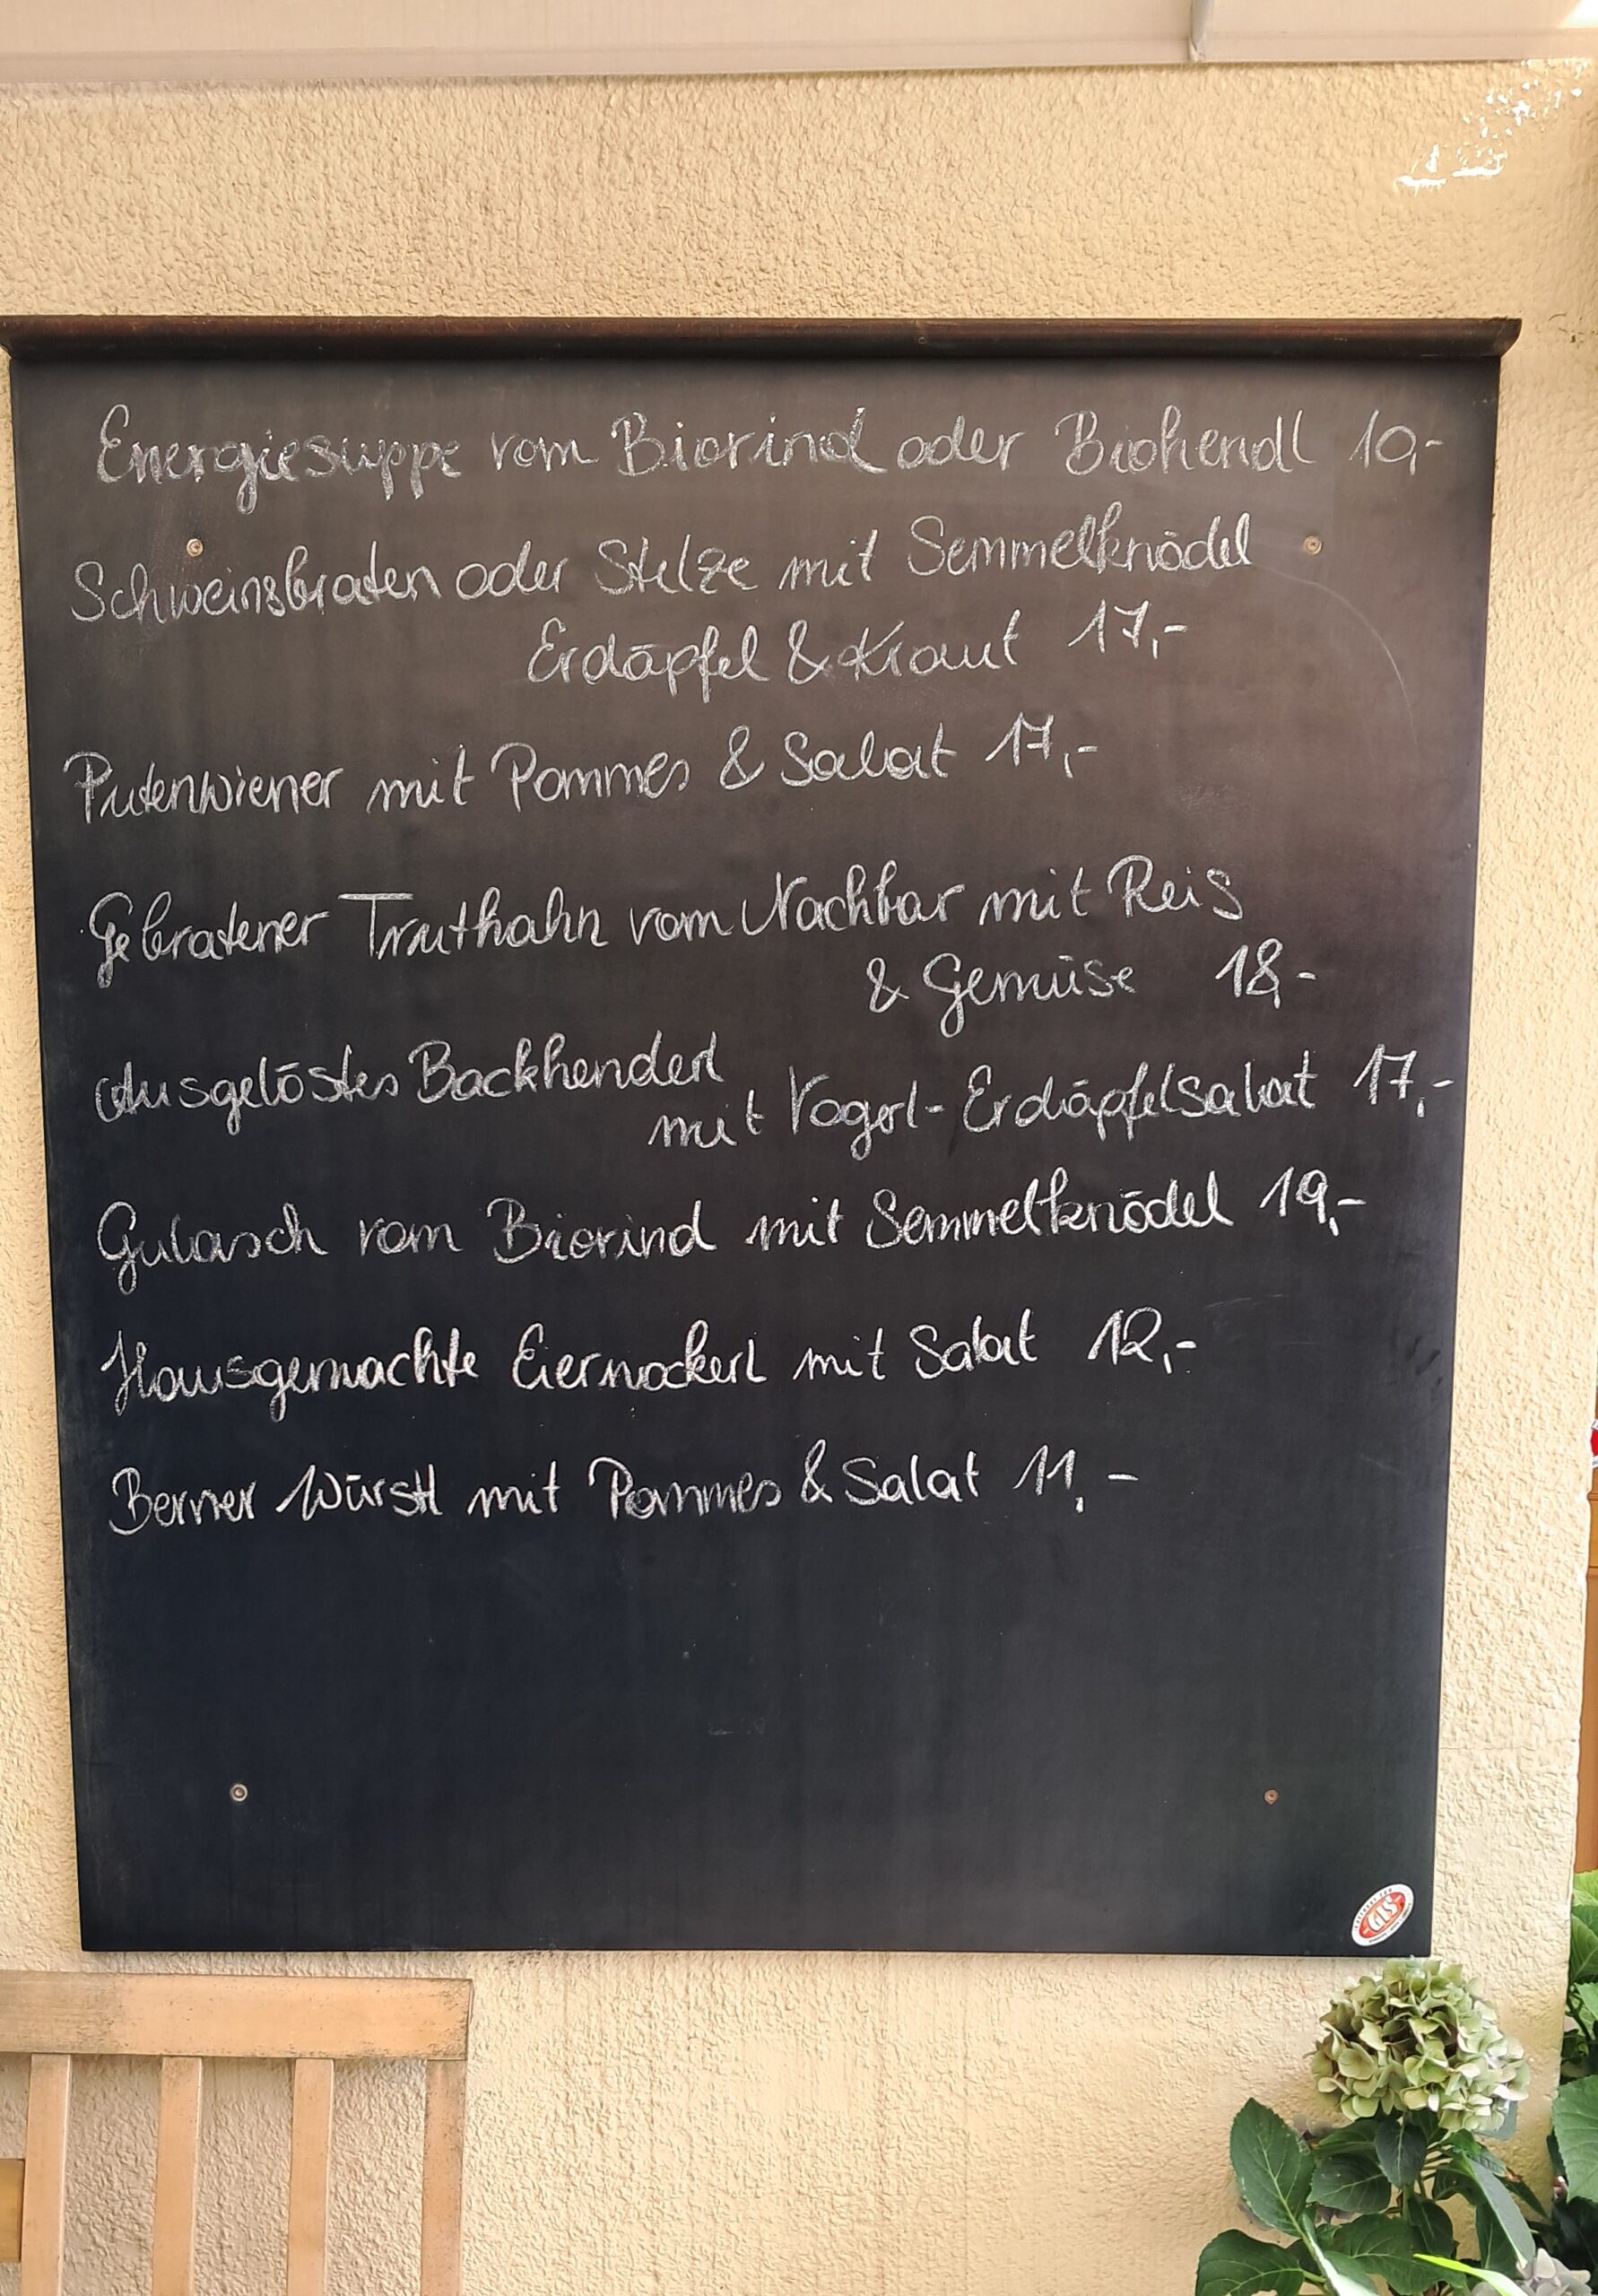 Energiesuppe vom Biorind oder Biohendl 10,-
Schweinsbraten oder Stelze mit Semmelknödel
Erdäpfel & Kraut 17,-
Putenwiener mit Pommes & Salat 17,-
Gebratener Truthahn vom Nachbar mit Reis
& Gemüse 18,-
Ausgelöstes Backhenderl
mit Vogerl-Erdäpfelsalat 17,-
Gulasch vom Biorind mit Semmelknödel 19,-
Hausgemachte Eiernockerl mit Salat 12,-
Berner Würstl mit Pommes & Salat 11,-
GIS